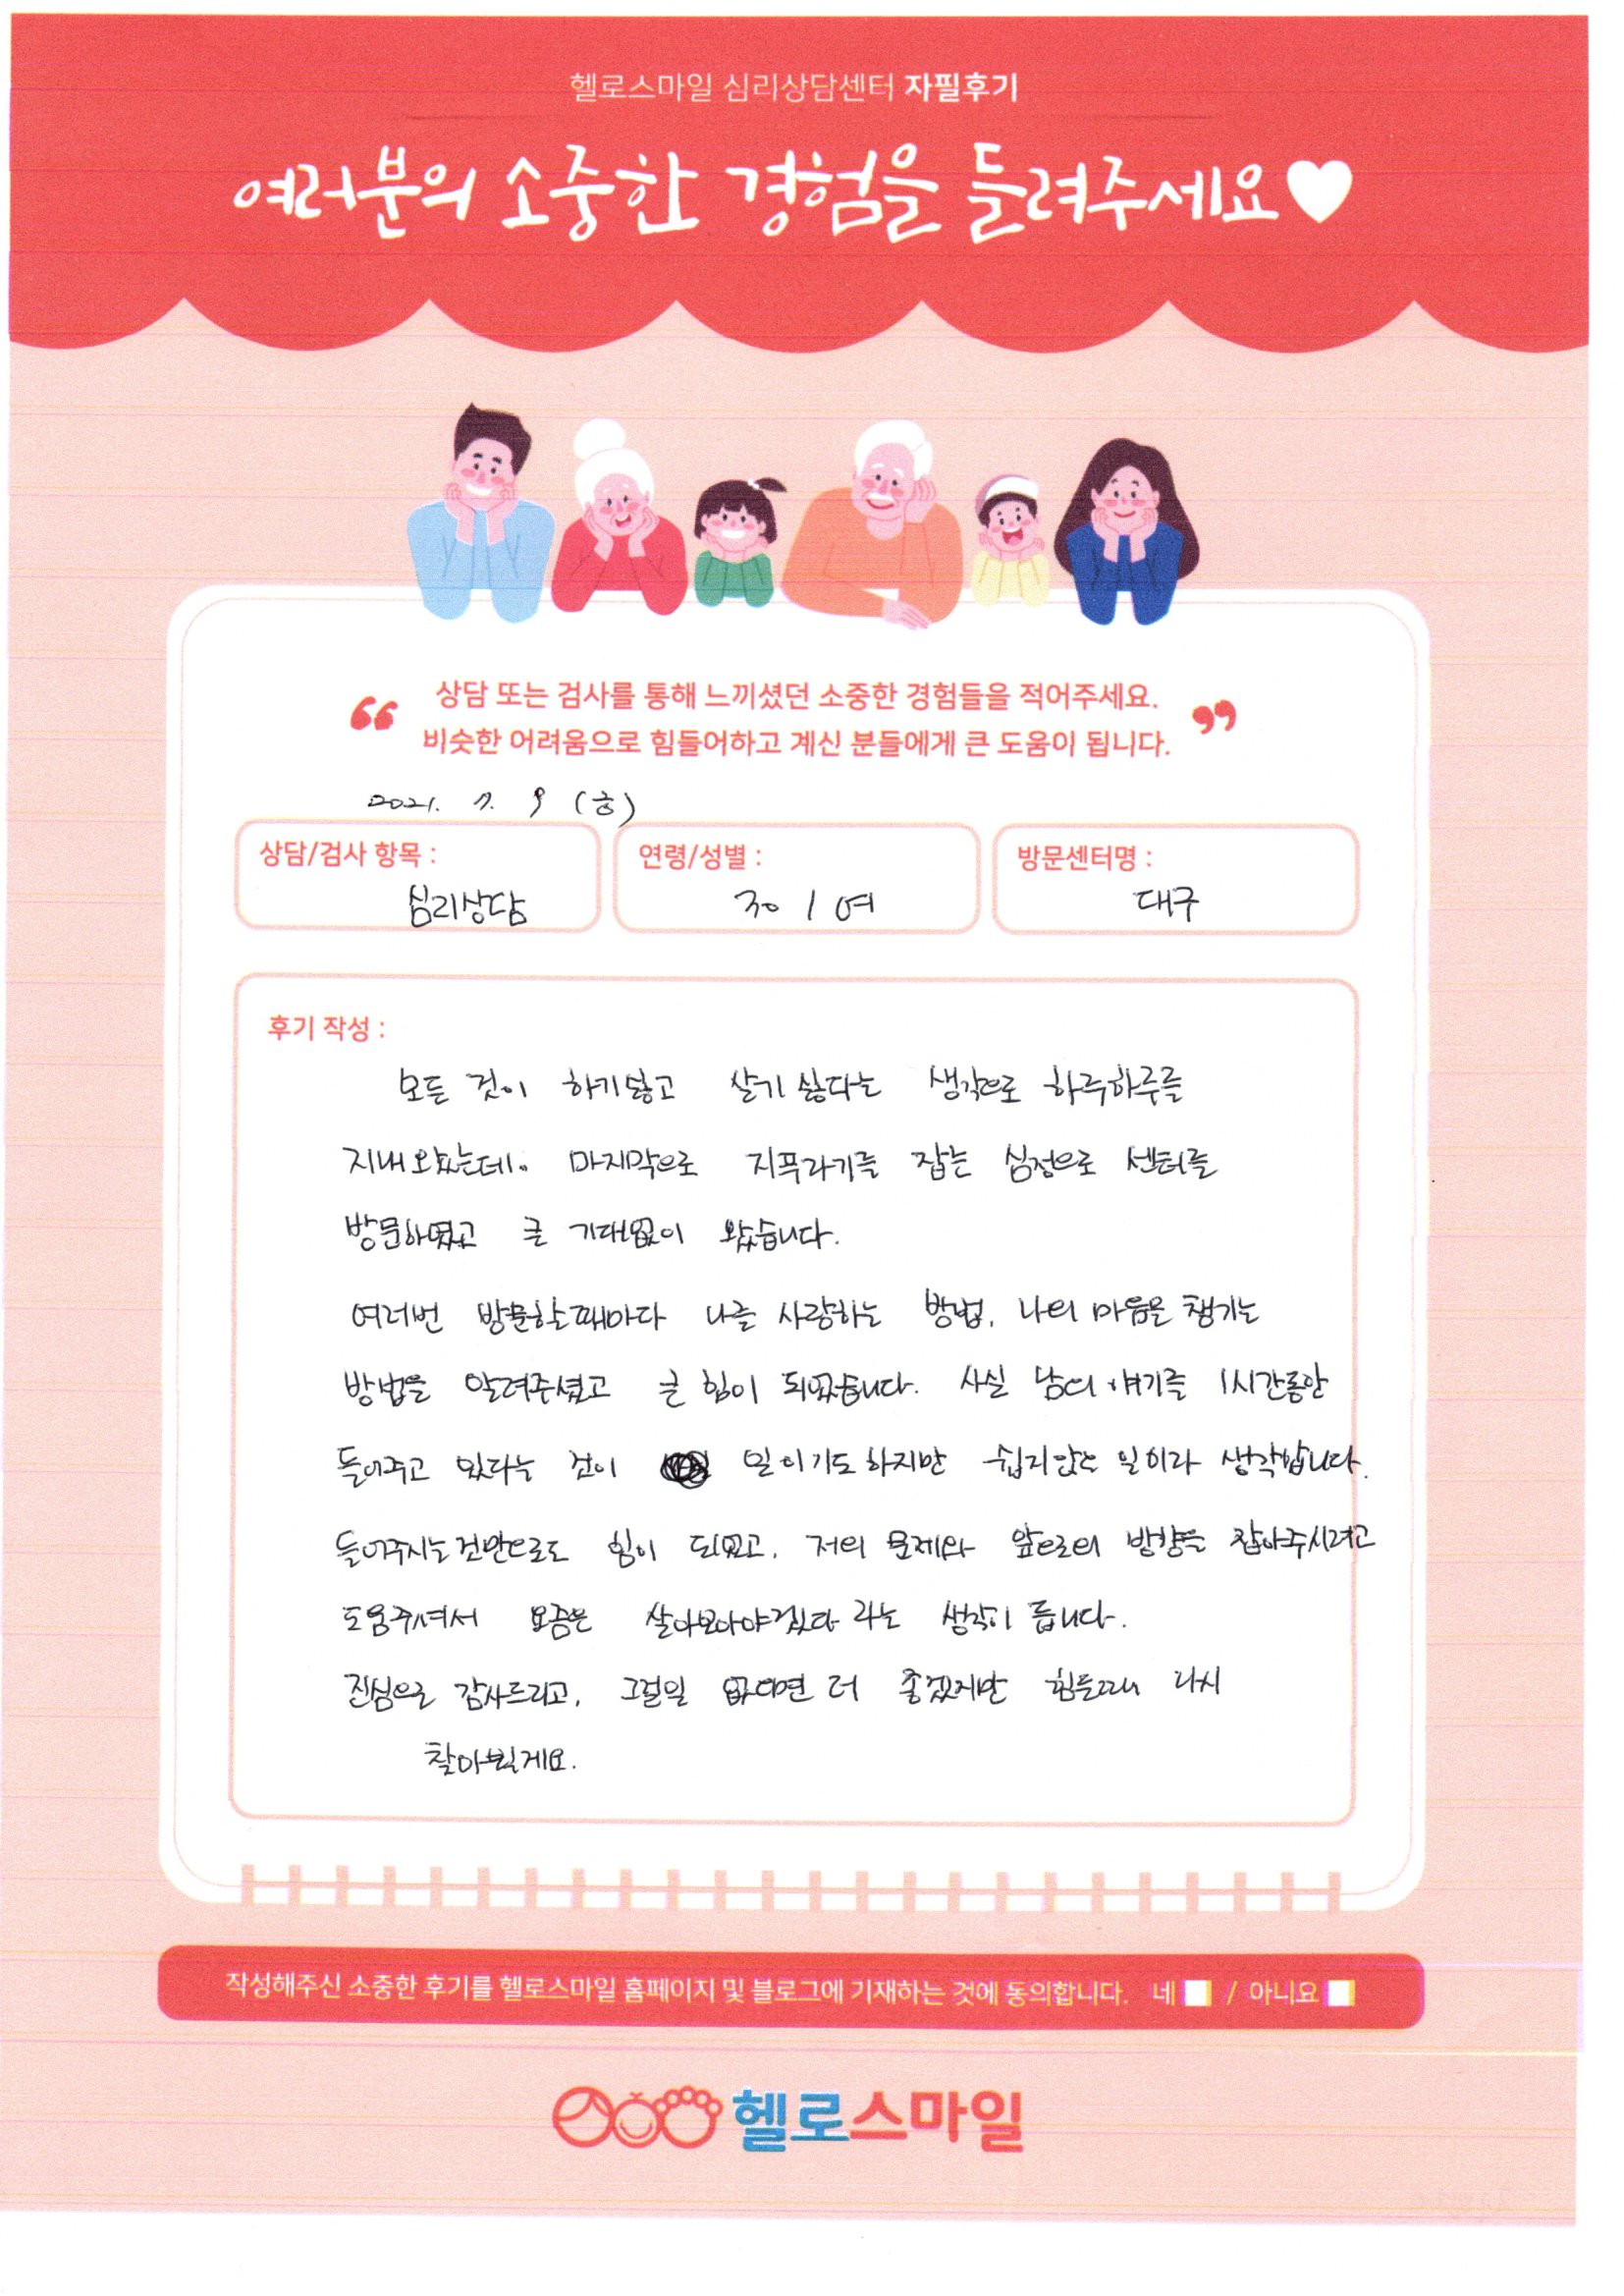 헬로스마일 심리상담센터 자필후기
여러분의 소중한 경험을 들려주세요♥
“ 상담 또는 검사를 통해 느끼셨던 소중한 경험들을 적어주세요.
비슷한 어려움으로 힘들어하고 계신 분들에게 큰 도움이 됩니다. ”
2021. 7. 9 (금)
상담/검사 항목 : 심리상담
연령/성별 : 30 / 여
방문센터명 : 대구
후기 작성 :
모든 것이 하기싫고 살기 싫다는 생각으로 하루하루를
지내왔는데. 마지막으로 지푸라기를 잡는 심정으로 센터를
방문하였고 큰 기대없이 왔습니다.
여러번 방문할때마다 나를 사랑하는 방법, 나의 마음을 챙기는
방법을 알려주셨고 큰 힘이 되었습니다. 사실 남의 얘기를 1시간동안
들어주고 있다는 것이 일이기도 하지만 쉽지않은 일이라 생각합니다.
들어주시는것만으로도 힘이 되었고, 저의 문제와 앞으로의 방향을 잡아주시려고
도움주셔서 요즘은 살아보아야겠다 라는 생각이 듭니다.
진심으로 감사드리고, 그럴일 없다면 더 좋겠지만 힘들때 다시
찾아뵐게요.
작성해주신 소중한 후기를 헬로스마일 홈페이지 및 블로그에 기재하는 것에 동의합니다. 네 / 아니요
헬로스마일